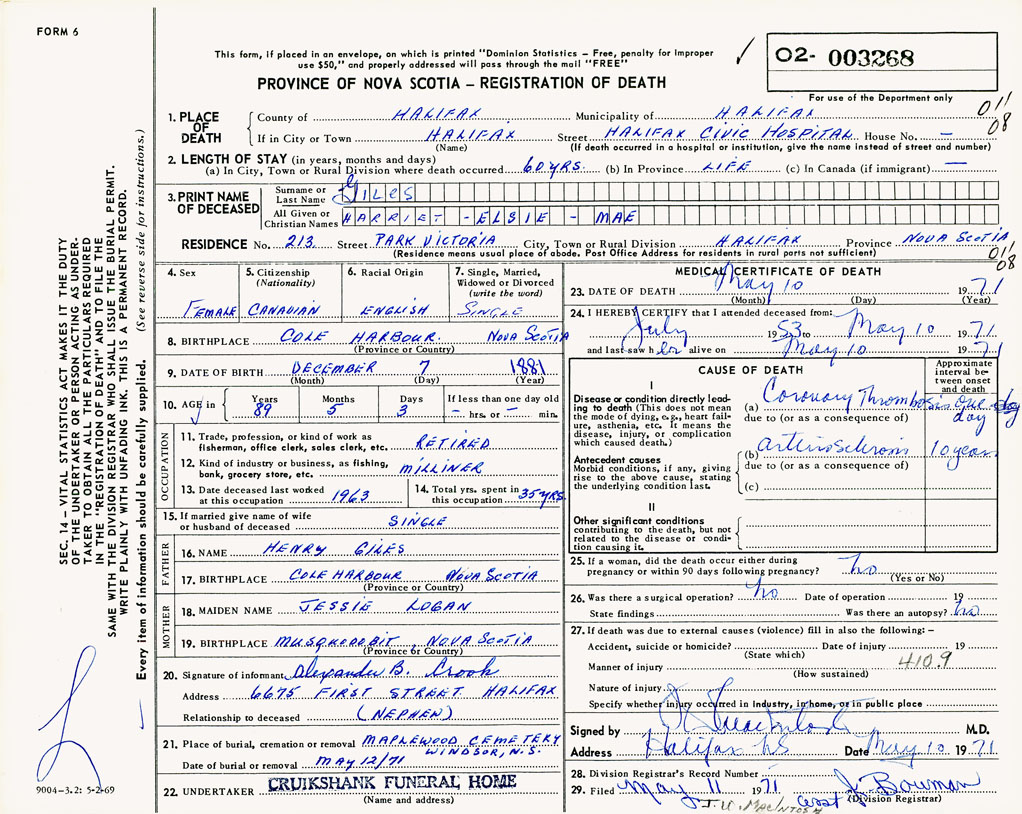 FORM 6
This form, if placed in an envelope, on which is printed "Dominion Statistics – Free, penalty for Improper
use $50," and properly addressed will pass through the mail "FREE"
✓ 02- 003268
PROVINCE OF NOVA SCOTIA – REGISTRATION OF DEATH
For use of the Department only
011
08
1. PLACE OF DEATH
County of HALIFAX Municipality of HALIFAX
If in City or Town HALIFAX Street HALIFAX CIVIC HOSPITAL House No. –
(Name) (If death occurred in a hospital or institution, give the name instead of street and number)
2. LENGTH OF STAY (in years, months and days)
(a) In City, Town or Rural Division where death occurred 60 YRS. (b) In Province LIFE (c) In Canada (if immigrant) –
3. PRINT NAME OF DECEASED
Surname or Last Name GILES
All Given or Christian Names HARRIET - ELSIE - MAE
RESIDENCE No. 213 Street PARK VICTORIA City, Town or Rural Division HALIFAX Province NOVA SCOTIA
(Residence means usual place of abode. Post Office Address for residents in rural ports not sufficient)
011
08
4. Sex
FEMALE
5. Citizenship
(Nationality)
CANADIAN
6. Racial Origin
ENGLISH
7. Single, Married,
Widowed or Divorced
(write the word)
SINGLE
8. BIRTHPLACE COLE HARBOUR. NOVA SCOTIA
(Province or Country)
9. DATE OF BIRTH DECEMBER 7 1881
(Month) (Day) (Year)
10. AGE in
Years 89
Months 5
Days 3
If less than one day old
– hrs. or – min.
OCCUPATION
11. Trade, profession, or kind of work as
fisherman, office clerk, sales clerk, etc. RETIRED
12. Kind of industry or business, as fishing,
bank, grocery store, etc. MILLINER
13. Date deceased last worked
at this occupation 1963
14. Total yrs. spent in
this occupation 35 YRS.
15. If married give name of wife
or husband of deceased SINGLE
FATHER
16. NAME HENRY GILES
17. BIRTHPLACE COLE HARBOUR NOVA SCOTIA
(Province or Country)
MOTHER
18. MAIDEN NAME JESSIE LOGAN
19. BIRTHPLACE MUSQUODOBIT, NOVA SCOTIA
(Province or Country)
20. Signature of informant Alexander B. Crook
Address 6675 FIRST STREET HALIFAX
Relationship to deceased (NEPHEW)
21. Place of burial, cremation or removal MAPLEWOOD CEMETERY
WINDSOR, N.S.
Date of burial or removal MAY 12/71
22. UNDERTAKER CRUIKSHANK FUNERAL HOME
(Name and address)
MEDICAL CERTIFICATE OF DEATH
23. DATE OF DEATH May 10 1971
(Month) (Day) (Year)
24. I HEREBY CERTIFY that I attended deceased from:
July 1953 to May 10 1971
and last saw her alive on May 10 1971
CAUSE OF DEATH
Approximate
interval be-
tween onset
and death
I
Disease or condition directly lead-
ing to death (This does not mean
the mode of dying, e.g., heart fail-
ure, asthenia, etc. It means the
disease, injury, or complication
which caused death.)
(a) Coronary Thrombosis One day
due to (or as a consequence of)
day
Antecedent causes
Morbid conditions, if any, giving
rise to the above cause, stating
the underlying condition last.
(b) arteriosclerosis 10 years
due to (or as a consequence of)
(c)
II
Other significant conditions
contributing to the death, but not
related to the disease or condi-
tion causing it.
25. If a woman, did the death occur either during
pregnancy or within 90 days following pregnancy? no
(Yes or No)
26. Was there a surgical operation? no Date of operation 19
State findings Was there an autopsy? no
27. If death was due to external causes (violence) fill in also the following: –
Accident, suicide or homicide? Date of injury 19
(State which)
410.9
Manner of injury
(How sustained)
Nature of injury
Specify whether injury occurred in industry, in home, or in public place
Signed by Macintosh M.D.
Address Halifax NS Date May 10 1971
28. Division Registrar's Record Number
29. Filed May 11 1971 J. Bowman
(Division Registrar)
J. U. MACINTOSH asst
SEC. 14 – VITAL STATISTICS ACT MAKES IT THE DUTY
OF THE UNDERTAKER OR PERSON ACTING AS UNDER-
TAKER TO OBTAIN ALL THE PARTICULARS REQUIRED
IN THE "REGISTRATION OF DEATH" AND TO FILE THE
SAME WITH THE DIVISION REGISTRAR WHO SHALL ISSUE THE BURIAL PERMIT.
WRITE PLAINLY WITH UNFADING INK. THIS IS A PERMANENT RECORD.
Every item of information should be carefully supplied. (See reverse side for instructions.)
9004-3.2: 5-2-69